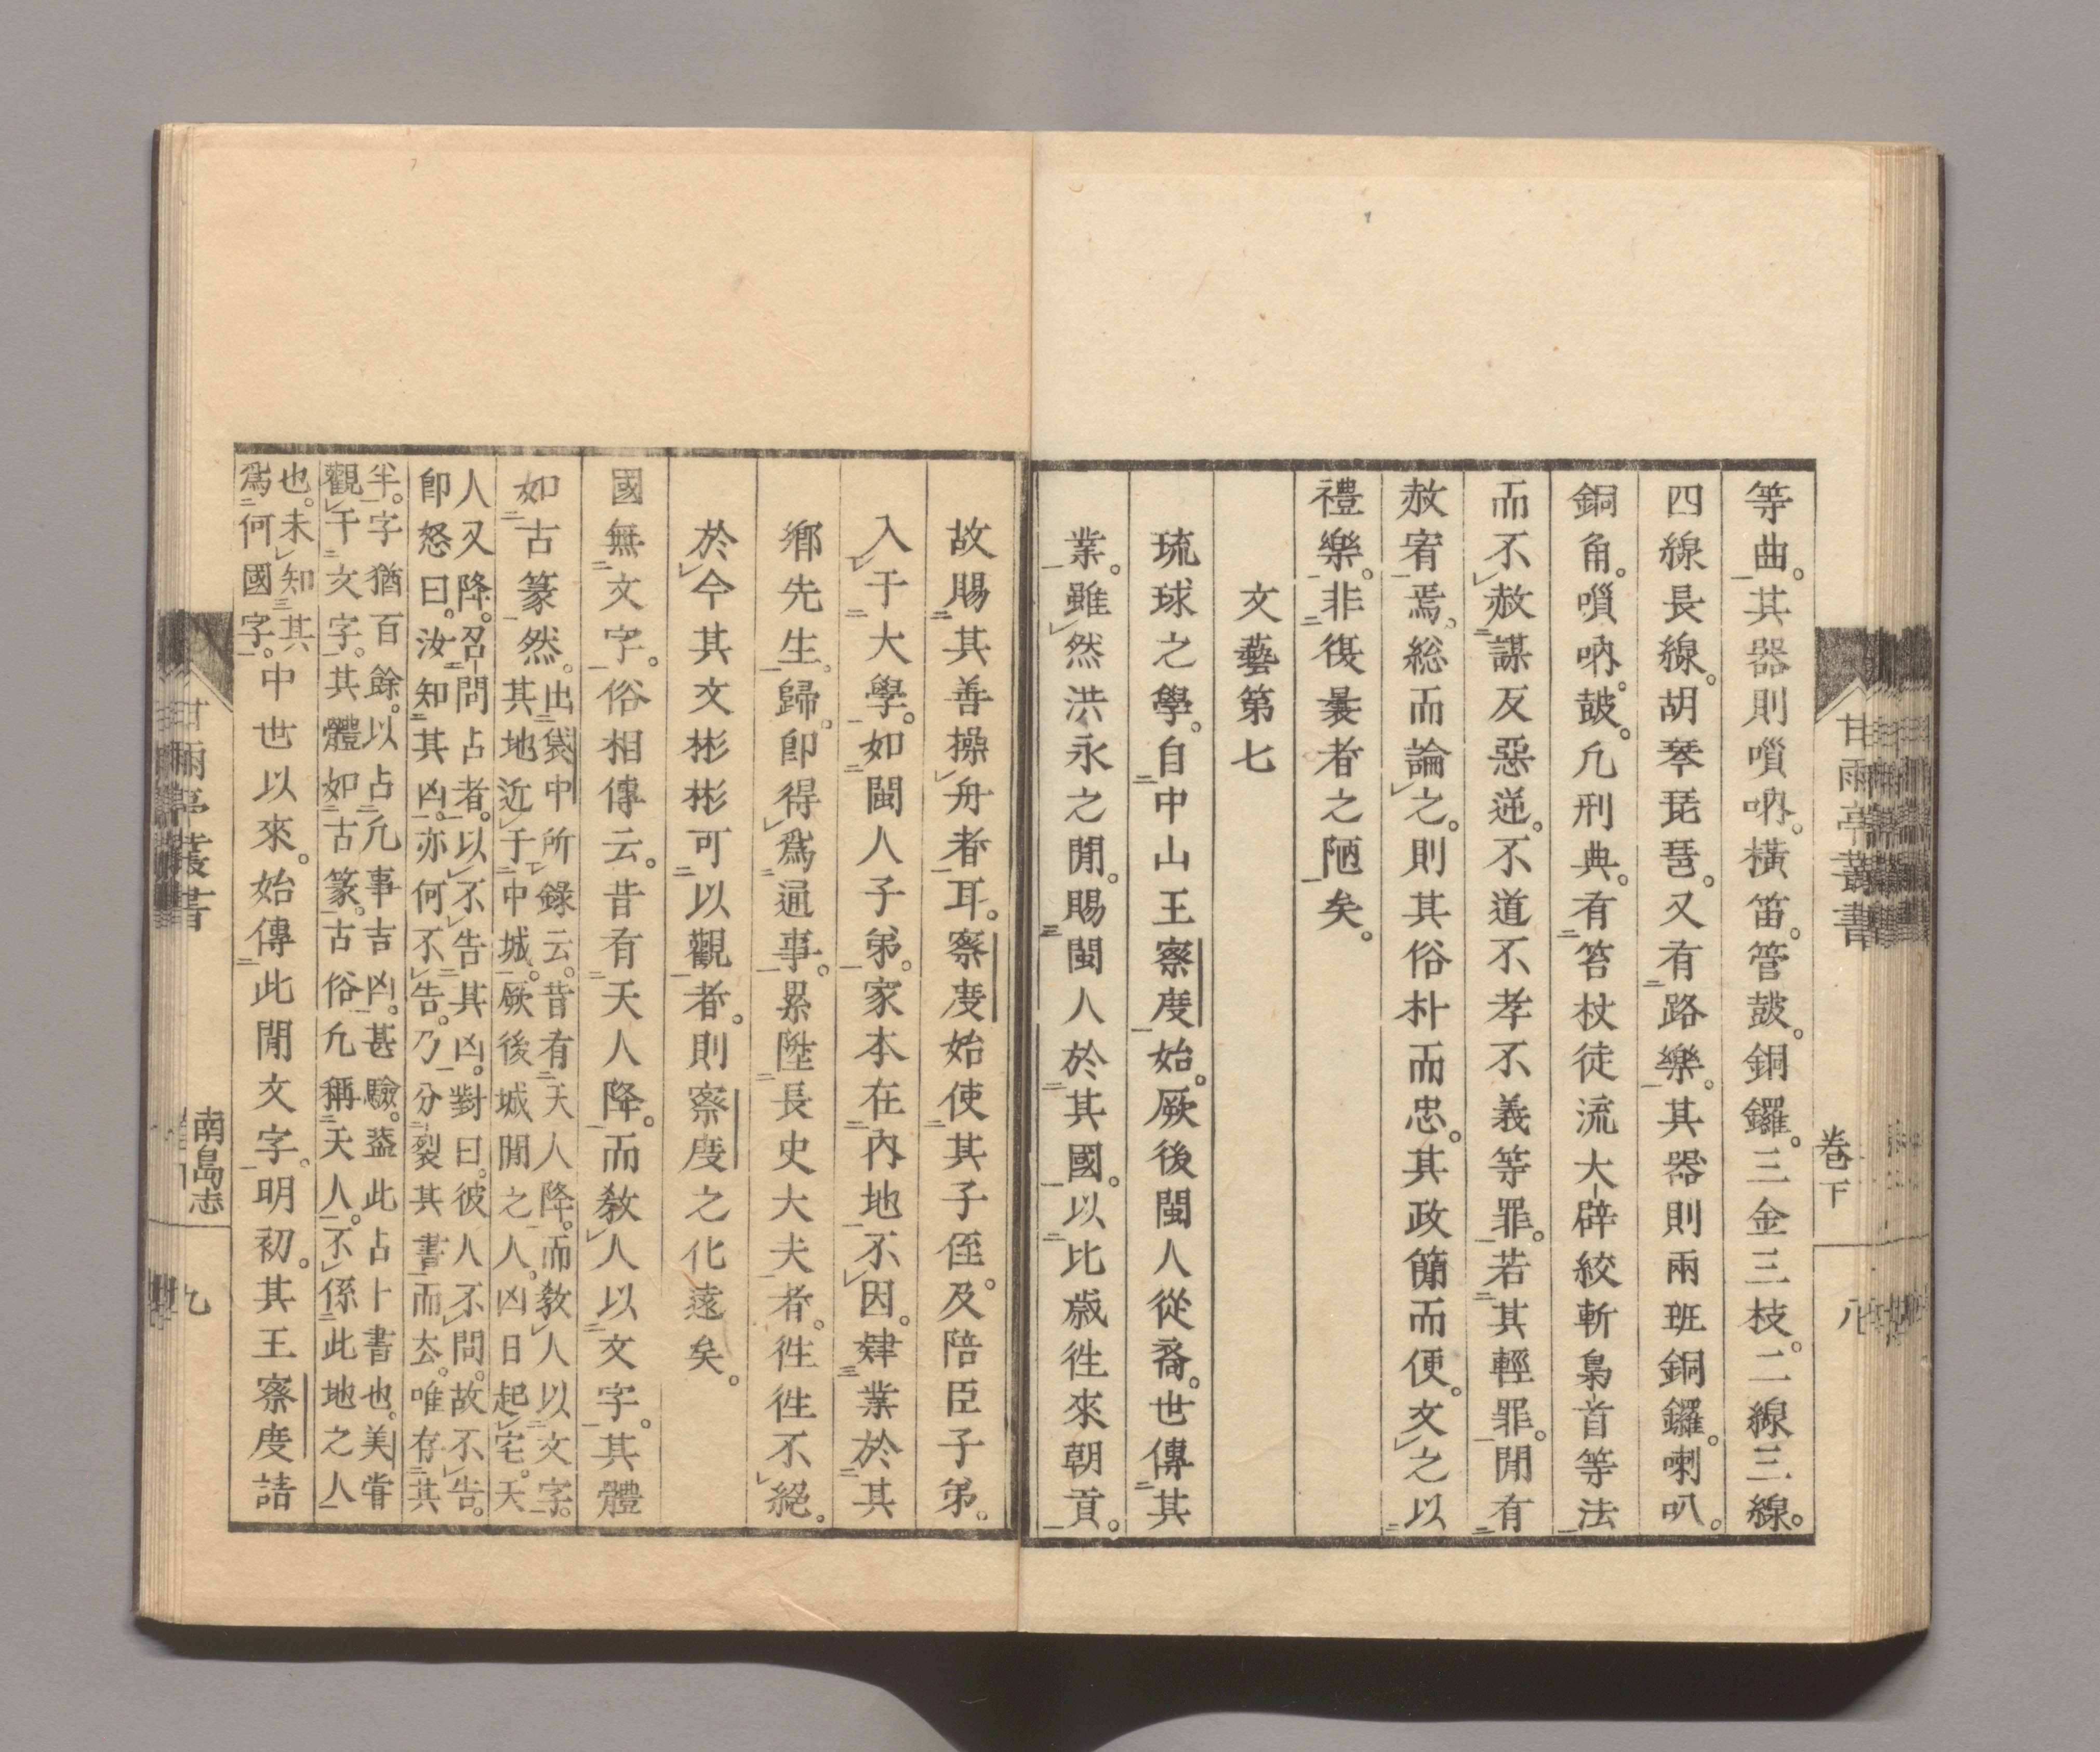 甘雨亭叢書
卷下
八
等曲。其器則嗩吶。橫笛。管鼓。銅鑼。三金三枝。二線三線。
四線長線。胡琴琵琶。又有路樂。其器則兩班銅鑼。喇叭。
銅角。嗩吶。鼓。凢刑典。有笞杖徒流大辟絞斬梟首等法
而不赦謀反惡逆。不道不孝不義等罪。若其輕罪。閒有
赦宥焉。総而論之。則其俗朴而忠。其政簡而便。文之以
禮樂。非復曩者之陋矣。
文藝第七
琉球之學。自中山王察度始。厥後閩人從裔。世傳其
業。雖然洪永之閒。賜閩人於其國。以比歲徃來朝貢。
故賜其善操舟者耳。察度始使其子侄。及陪臣子弟。
入于大學。如閩人子弟。家本在內地。不因。肄業於其
鄉先生。歸。卽得爲通事。累陞長史大夫者。徃徃不絕。
於今其文彬彬可以觀者。則察度之化遠矣。
國無文字。俗相傳云。昔有天人降。而敎人以文字。其體
如古篆然。
出袋中所錄云。昔有天人降。而敎人以文字。
其地近于中城。厥後城閒之人。凶日起宅。天
人又降。召問占者。以不告其凶。對曰。彼人不問。故不告。
卽怒曰。汝知其凶。亦何不告。乃分裂其書而厺。唯存其
半。字猶百餘。以占凢事吉凶。甚驗。蓋此占卜書也。美甞
觀干文字。其體如古篆。古俗凢稱天人。不係此地之人
也。未知其
爲何國字。
中世以來。始傳此閒文字。明初。其王察度詰
甘雨亭叢書
南島志
九